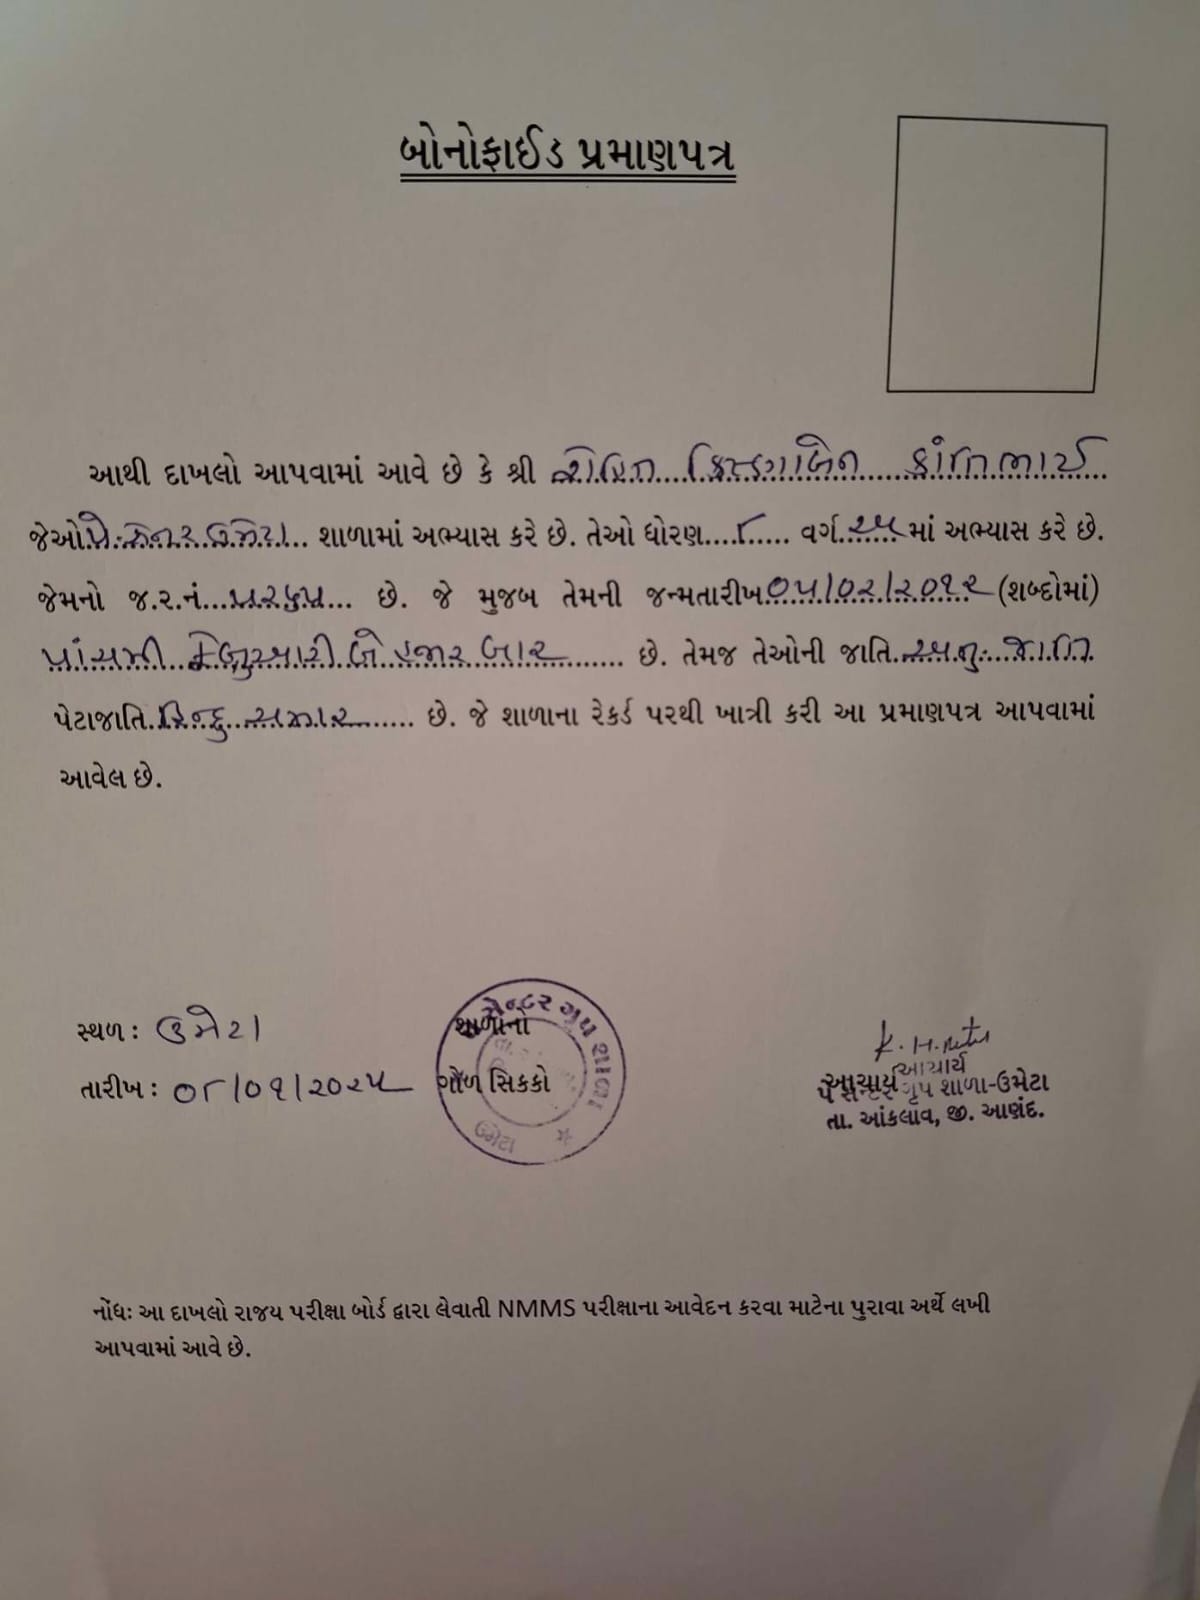 બોનોફાઈડ પ્રમાણપત્ર
આથી દાખલો આપવામાં આવે છે કે શ્રી રોહિત ક્રિષ્નાબેન કાંતિભાઈ
જેઓ પે.સેન્ટર ઉમેટા શાળામાં અભ્યાસ કરે છે. તેઓ ધોરણ ૮ વર્ગ અ માં અભ્યાસ કરે છે.
જેમનો જ.ર.નં. ૫૨૬૫ છે. જે મુજબ તેમની જન્મતારીખ ૦૫/૦૨/૨૦૧૨ (શબ્દોમાં)
પાંચમી ફેબ્રુઆરી બે હજાર બાર છે. તેમજ તેઓની જાતિ અનુ. જાતિ
પેટાજાતિ હિન્દુ ચમાર છે. જે શાળાના રેકર્ડ પરથી ખાત્રી કરી આ પ્રમાણપત્ર આપવામાં
આવેલ છે.
સ્થળ : ઉમેટા
તારીખ : ૦૮/૦૧/૨૦૨૫
સેન્ટર ગૃપ શાળા
શાળાનો
ગોળ સિક્કો
ઉમેટા
આચાર્ય
આચાર્ય
પે સેન્ટર ગૃપ શાળા-ઉમેટા
તા. આંકલાવ, જી. આણંદ.
નોંધઃ આ દાખલો રાજય પરીક્ષા બોર્ડ દ્વારા લેવાતી NMMS પરીક્ષાના આવેદન કરવા માટેના પુરાવા અર્થે લખી
આપવામાં આવે છે.